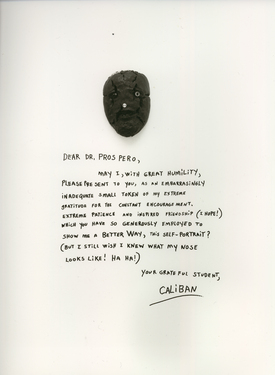 DEAR DR. PROSPERO,
MAY I, WITH GREAT HUMILITY,
PLEASE PRESENT TO YOU, AS AN EMBARRASINGLY
INADEQUATE SMALL TOKEN OF MY EXTREME
GRATITUDE FOR THE CONSTANT ENCOURAGEMENT.
EXTREME PATIENCE AND INSPIRED FRIENDSHIP (I HOPE!)
WHICH YOU HAVE SO GENEROUSLY EMPLOYED TO
SHOW ME A BETTER WAY, THIS SELF-PORTRAIT?
(BUT I STILL WISH I KNEW WHAT MY NOSE
LOOKS LIKE! HA HA!)
YOUR GRATEFUL STUDENT,
CALIBAN